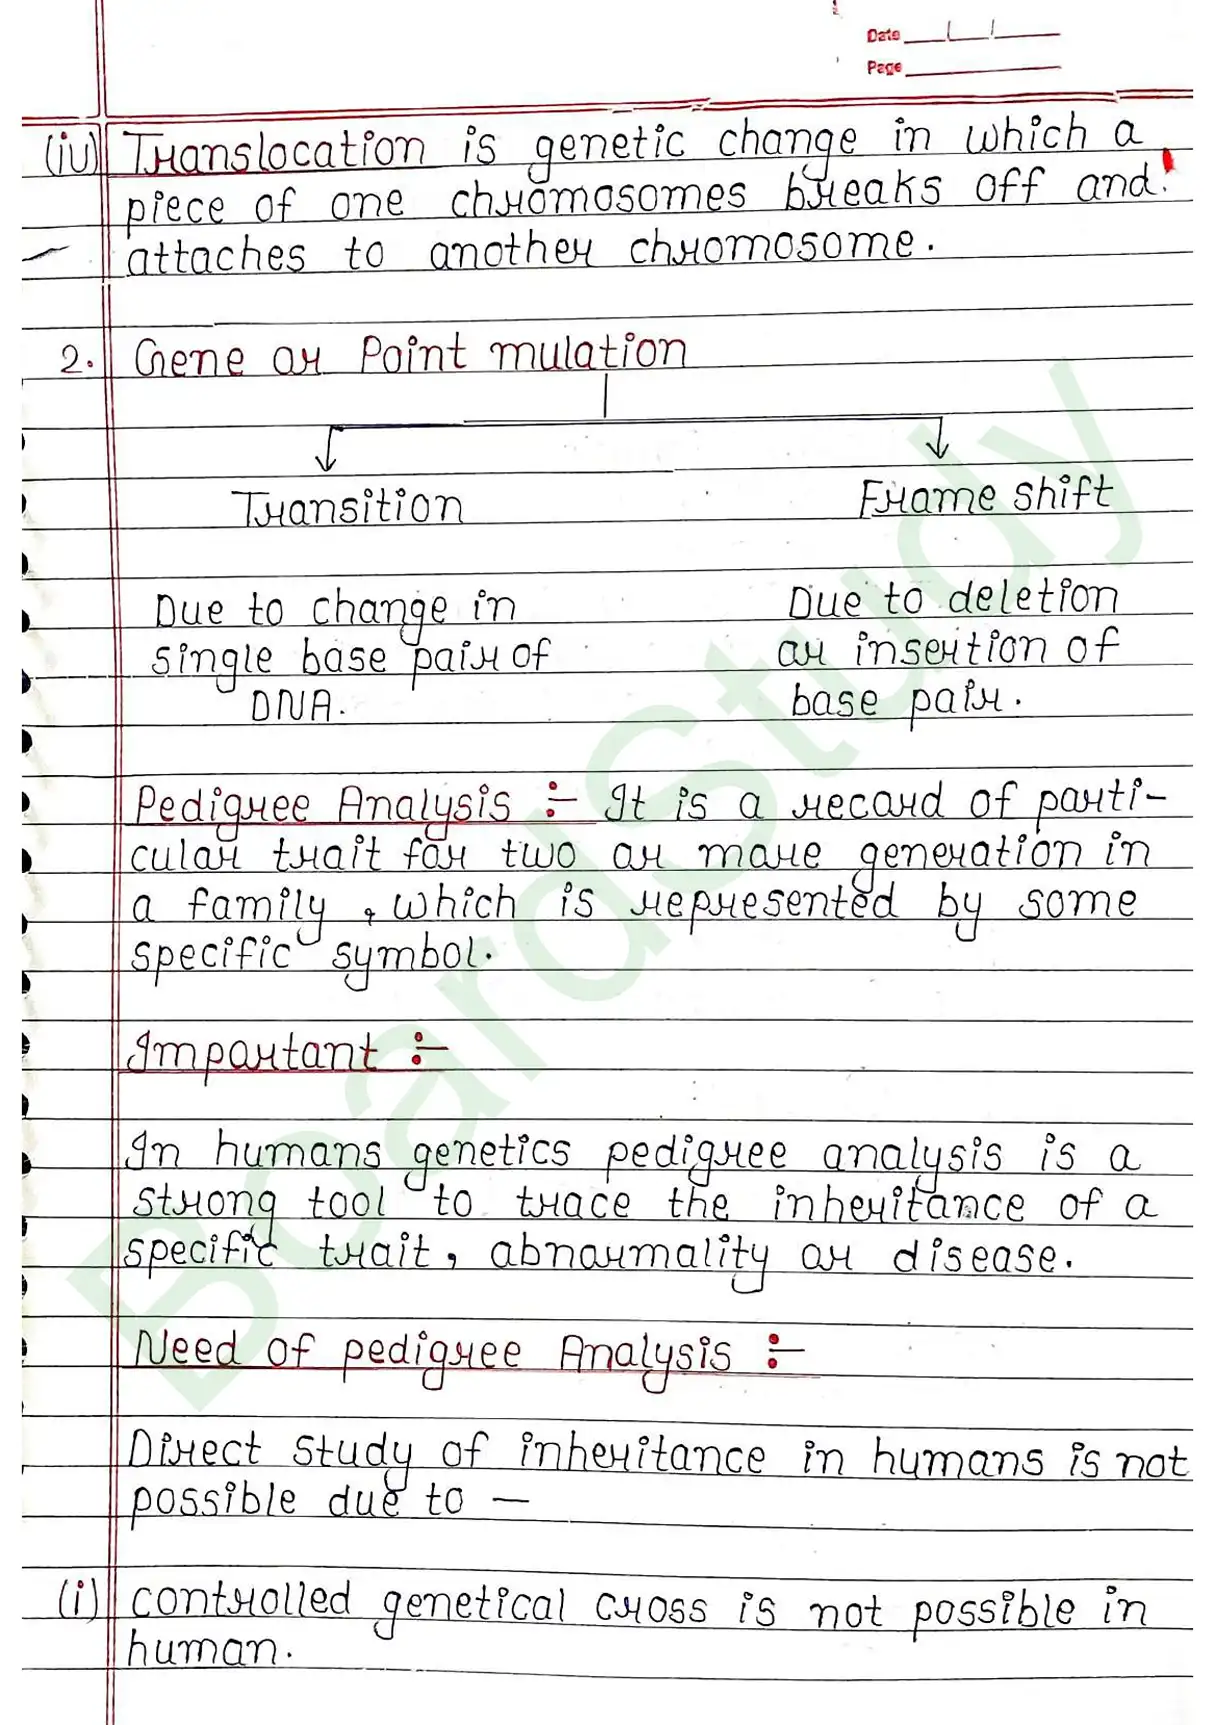 Date
Page
(iv) Translocation is genetic change in which a
piece of one chromosomes breaks off and
attaches to another chromosome.
2. Gene or Point mulation
Transition Frame shift
Due to change in Due to deletion
single base pair of or insertion of
DNA. base pair.
Pedigree Analysis :- It is a record of parti-
cular trait for two or more generation in
a family, which is represented by some
specific symbol.
Important :-
In humans genetics pedigree analysis is a
strong tool to trace the inheritance of a
specific trait, abnormality or disease.
Need of pedigree Analysis :-
Direct study of inheritance in humans is not
possible due to —
(i) controlled genetical cross is not possible in
human.
BoardStudy